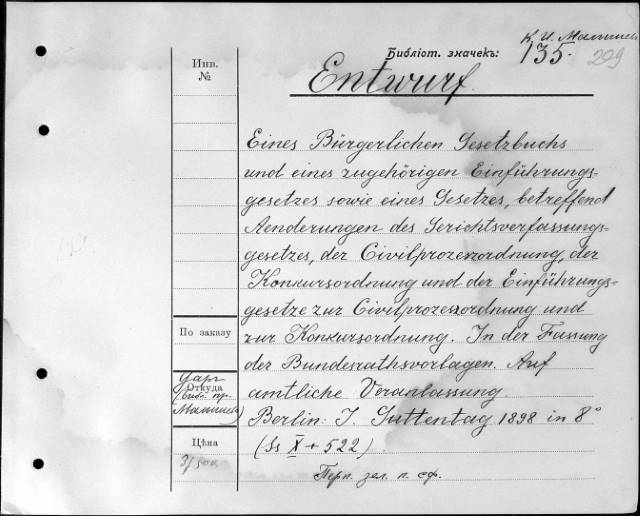 К. И. Малышев
Библіот. значекъ: 135. 299
Инв.
№
Entwurf.
Eines Bürgerlichen Gesetzbuchs
und eines zugehörigen Einführungs-
gesetzes sowie eines Gesetzes, betreffend
Aenderungen des Gerichtsverfassungs-
gesetzes, der Civilprozessordnung, der
Konkursordnung und der Einführungs-
gesetze zur Civilprozessordnung und
zur Konkursordnung. In der Fassung
der Bundesrathsvorlagen. Auf
amtliche Veranlassung.
Berlin: J. Guttentag 1898 in 8°
(Ss X + 522)
Перп. зел. п. сф.
По заказу
Откуда
Даръ
(библ. пр.
Малышева)
Цѣна